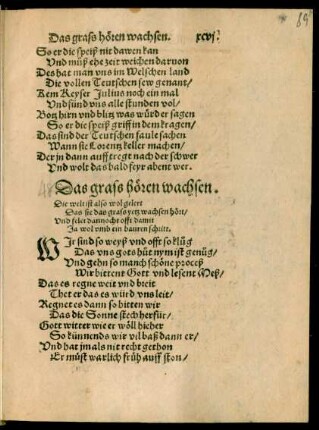 Das grass hören wachsen. xcvj.
89
So er die speiß nit dawen kan
Und müß ehe zeit weichen daruon
Des hat man vns im Welschen land
Die vollen Teutschen sew genant/
Kem Keyser Julius noch ein mal
Und fünd vns alle stunden vol/
Botz hirn vnd blitz was würd er sagen
So er die speiß griff in dem kragen/
Das sind der Teutschen faule sachen
Wann sie Lorentz keller machen/
Der jn dann aufftregt nach der schwer
Und wolt das bald feyrabent wer.
Das grass hören wachsen.
Die welt ist also wol gelert
Das sie das grass yetz wachsen hört/
Und felet dannocht offt damit
Ja wol vmb ein bauren schritt.
Wir sind so weyß vnd offt so klüg
Das vns gots hüt nym ist genüg/
Und gehn so manch schöne proceß
Wir bittent Gott vnd lesent Meß/
Das es regne weit vnd breit
Thet er das es würd vns leit/
Regnet es dann so bitten wir
Das die Sonne stech herfür/
Gott witter wie er wöll hieher
So künnends wir vil baß dann er/
Und hat jm als nit recht gethon
Er müst warlich früh auff ston/